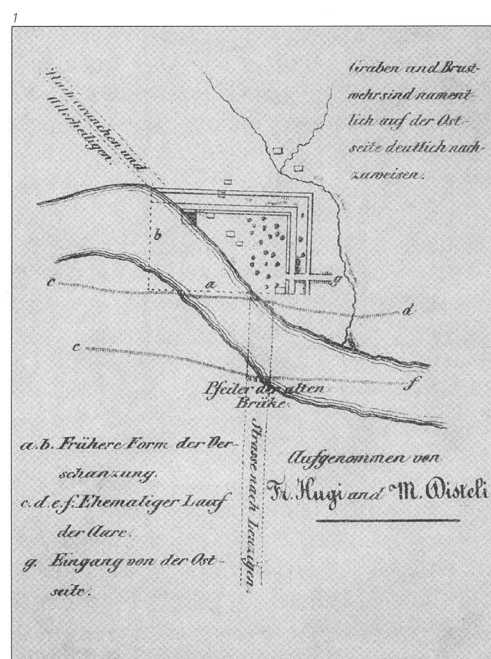 1
Graben und Brust-
wehr sind nament-
lich auf der Ost-
seite deutlich nach-
zuweisen.
Nach Grenchen und
Allerheiligen.
b
a
g
c
d
e
f
Pfeiler der alten
Brüke.
Strasse nach Leuzigen.
a.b. Frühere Form der Ver-
schanzung.
c.d.e.f. Ehemaliger Lauf
der Aare.
g. Eingang von der Ost-
seite.
Aufgenommen von
Fr. Hugi and M. Disteli